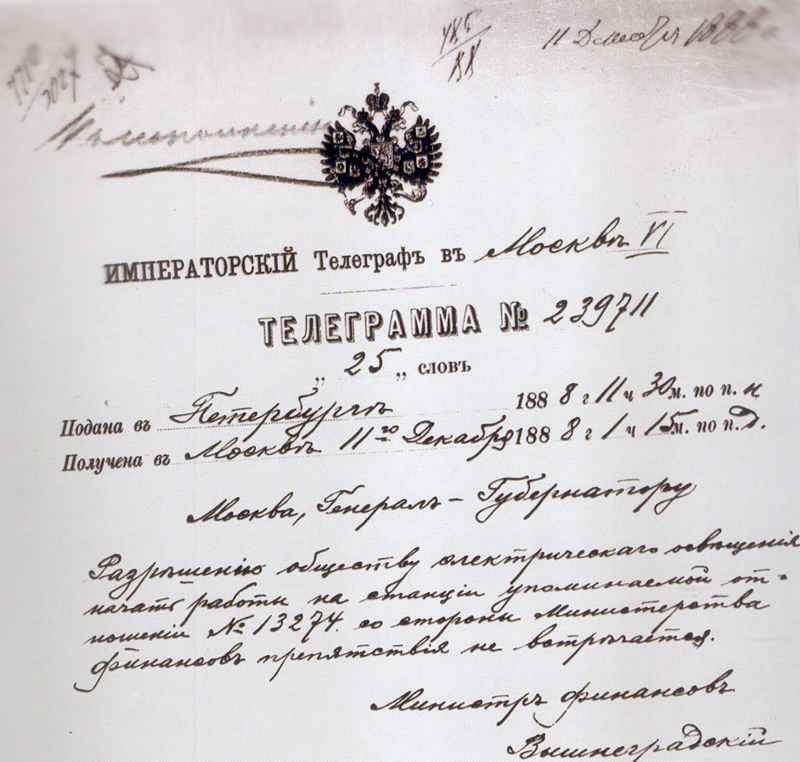 485/88
11 Декабря 1888
Къ исполненію
ИМПЕРАТОРСКІЙ Телеграфъ въ Москвѣ VI
ТЕЛЕГРАММА № 239711
„ 25 „ словъ
Подана въ Петербургѣ 1888 г 11 ч 30 м. по п. н
Получена въ Москвѣ 11го Декабря 1888 г 1 ч 15 м. по п. д.
Москва, Генералъ-Губернатору
Разрѣшенію обществу электрическаго освѣщенія
начать работы на станціи упоминаемой от-
ношеніи № 13274. со стороны Министерства
финансовъ препятствія не встрѣчается.
Министръ финансовъ
Вышнеградскій